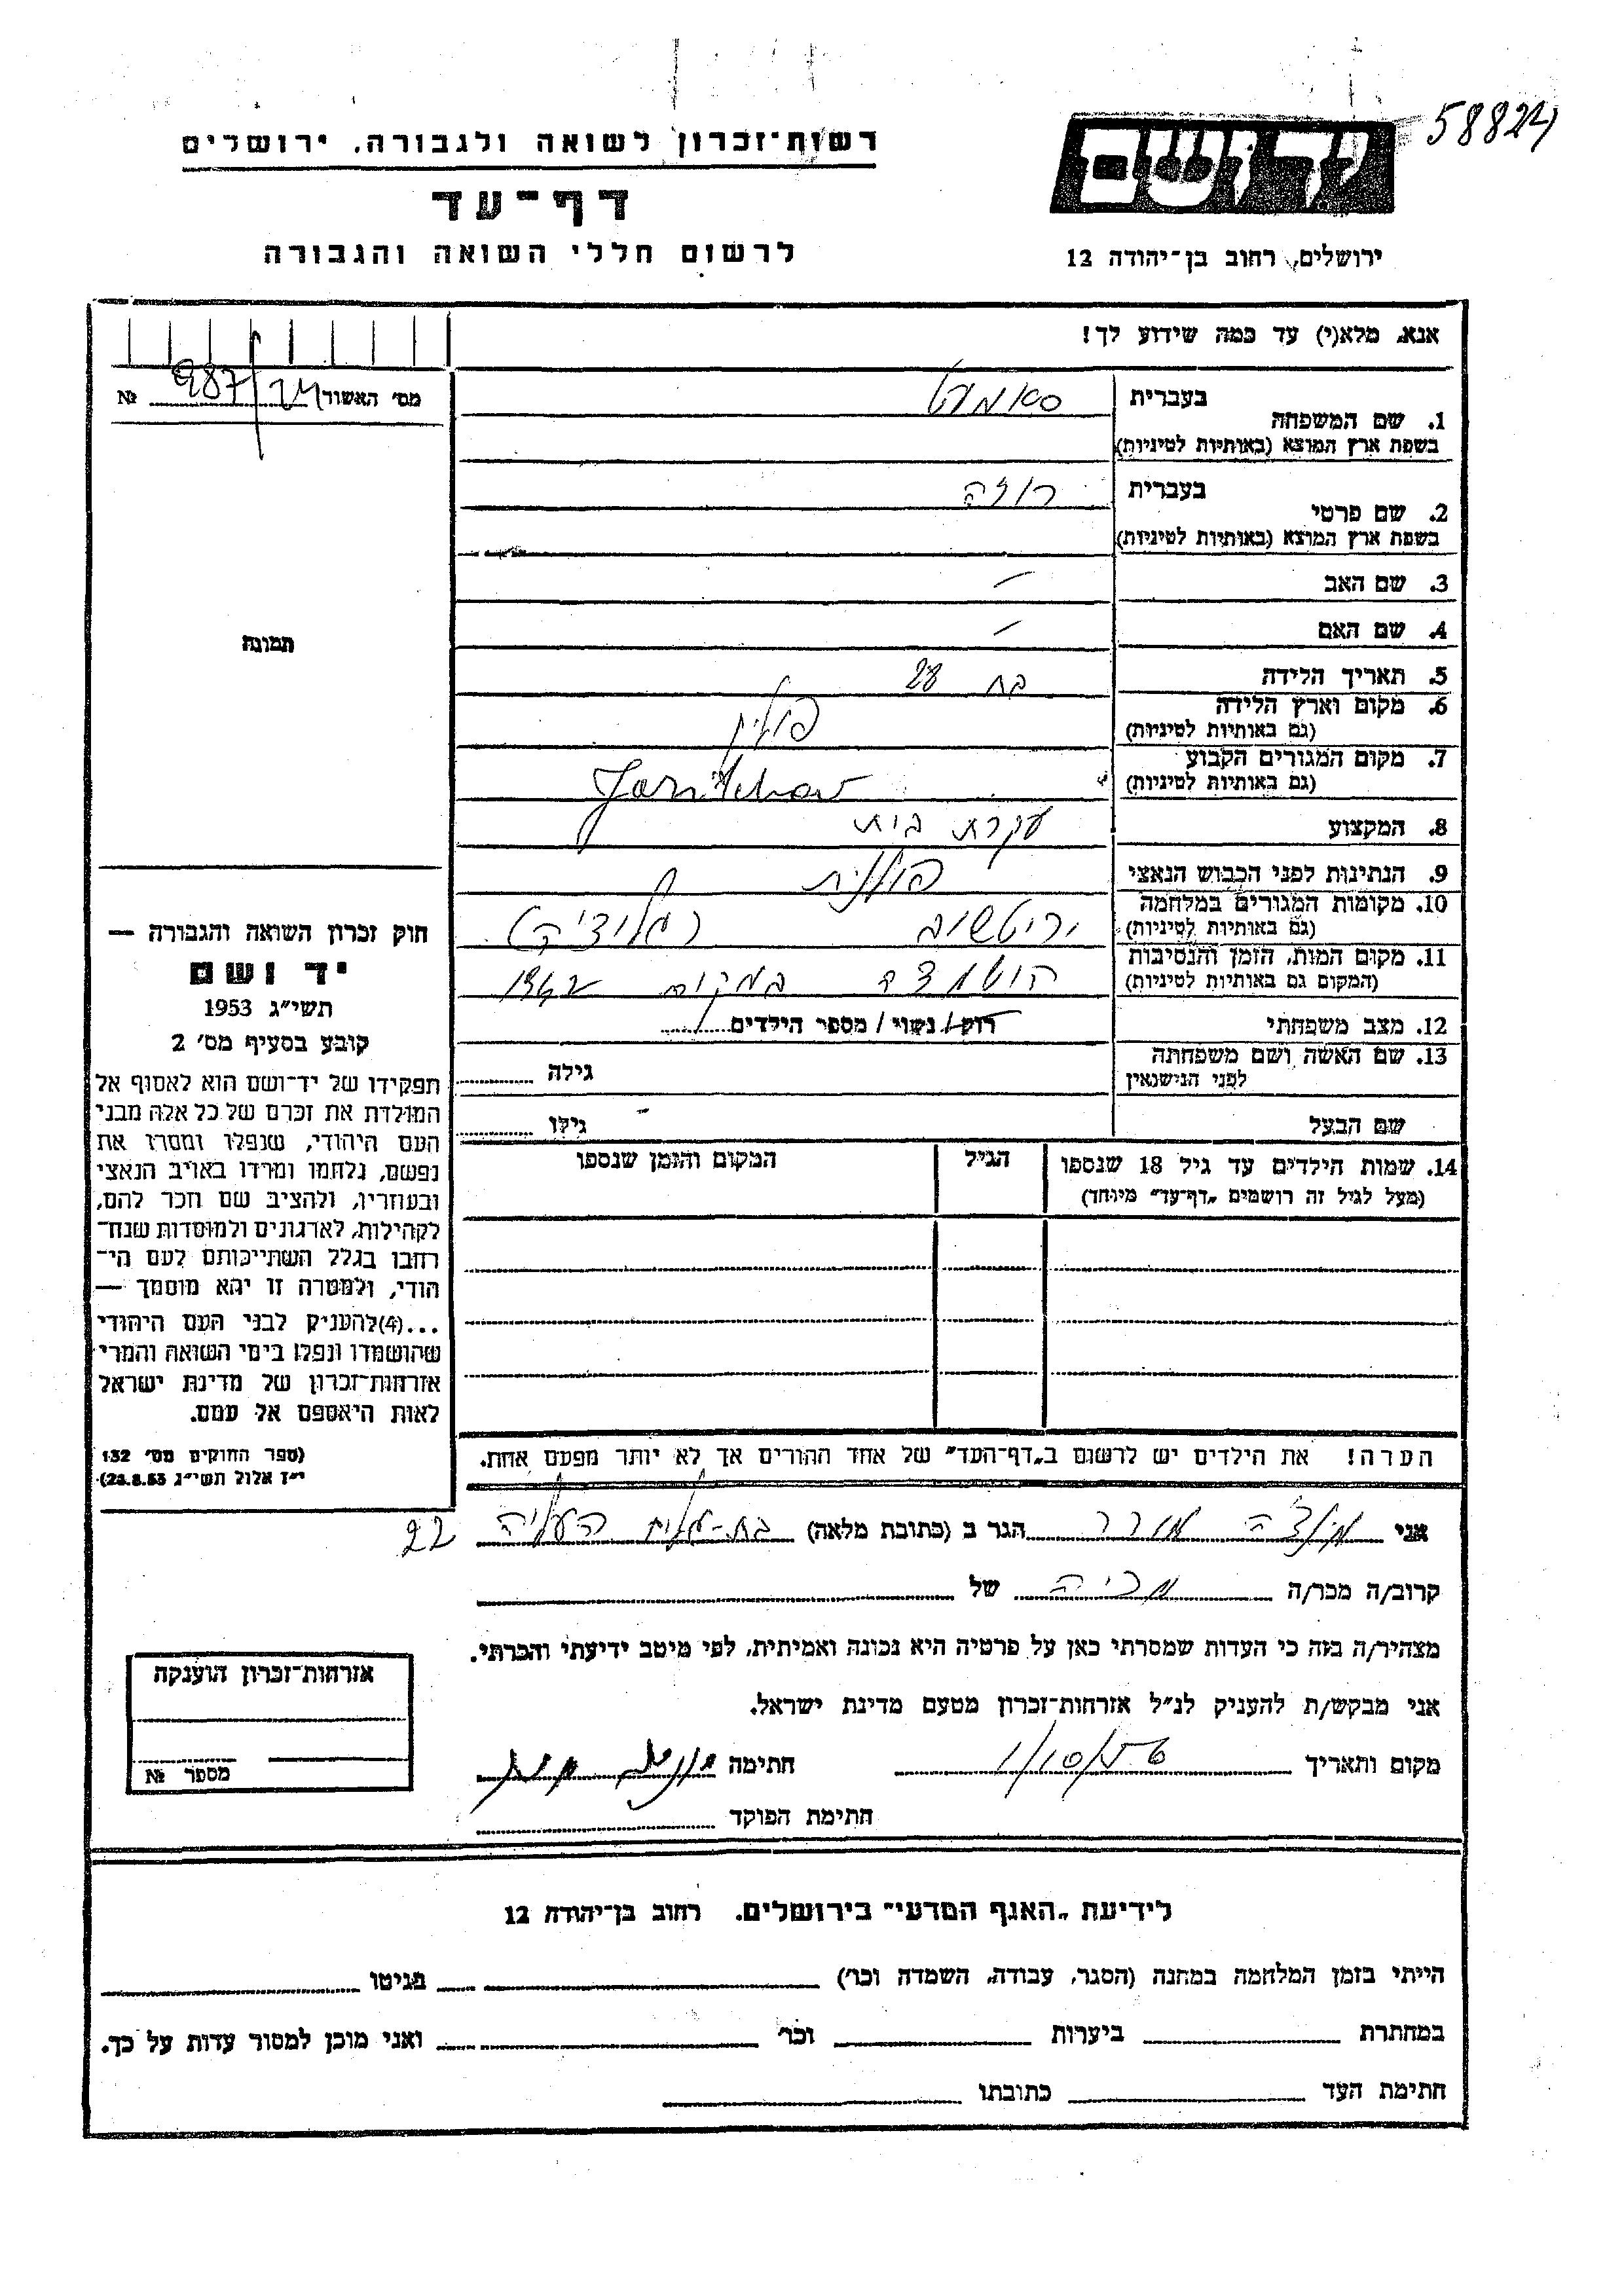 58824
רשות־זכרון לשואה ולגבורה, ירושלים
דף־עד
לרשום חללי השואה והגבורה
יד ושם
ירושלים, רחוב בן־יהודה 12
אנא, מלא(י) עד כמה שידוע לך!
מס' האשור 987/24 №
בעברית
1. שם המשפחה
בשפת ארץ המוצא (באותיות לטיניות)
בעברית רוזה
2. שם פרטי
בשפת ארץ המוצא (באותיות לטיניות)
3. שם האב –
4. שם האם –
5. תאריך הלידה בת 28
6. מקום וארץ הלידה פולין
(גם באותיות לטיניות)
7. מקום המגורים הקבוע
(גם באותיות לטיניות)
8. המקצוע עקרת בית
9. הנתינות לפני הכבוש הנאצי פולנית
10. מקומות המגורים במלחמה (גליציה)
(גם באותיות לטיניות)
11. מקום המות, הזמן והנסיבות הושמדה במקום 1942
(המקום גם באותיות לטיניות)
12. מצב משפחתי רווק/נשוי/מספר הילדים
13. שם האשה ושם משפחתה גילה
לפני הנישואין
שם הבעל – גילו
14. שמות הילדים עד גיל 18 שנספו הגיל המקום והזמן שנספו
(מעל לגיל זה רושמים „דף־עד" מיוחד)
הערה! את הילדים יש לרשום ב„דף־העד" של אחד ההורים אך לא יותר מפעם אחת.
תמונה
חוק זכרון השואה והגבורה —
יד ושם
תשי"ג 1953
קובע בסעיף מס' 2
תפקידו של יד־ושם הוא לאסוף אל
המולדת את זכרם של כל אלה מבני
העם היהודי, שנפלו ומסרו את
נפשם, נלחמו ומרדו באויב הנאצי
ובעוזריו, ולהציב שם וזכר להם,
לקהילות, לארגונים ולמוסדות שנח־
רבו בגלל השתייכותם לעם הי־
הודי, ולמטרה זו יהא מוסמך —
...(4)להעניק לבני העם היהודי
שהושמדו ונפלו בימי השואה והמרי
אזרחות־זכרון של מדינת ישראל
לאות היאספם אל עמם.
(ספר החוקים מס' 132
י"ז אלול תשי"ג 28.8.53)
אני הגר ב (כתובת מלאה) בת-גלים העליה 22
קרוב/ה מכר/ה מכירה של
מצהיר/ה בזה כי העדות שמסרתי כאן על פרטיה היא נכונה ואמיתית, לפי מיטב ידיעתי והכרתי.
אני מבקש/ת להעניק לנ"ל אזרחות־זכרון מטעם מדינת ישראל.
מקום ותאריך חתימה
חתימת הפוקד
אזרחות־זכרון הוענקה
מספר №
לידיעת „האגף המדעי" בירושלים, רחוב בן־יהודה 12
הייתי בזמן המלחמה במחנה (הסגר, עבודה, השמדה וכו') בגיטו
במחתרת ביערות וכו' ואני מוכן למסור עדות על כך.
חתימת העד כתובתו